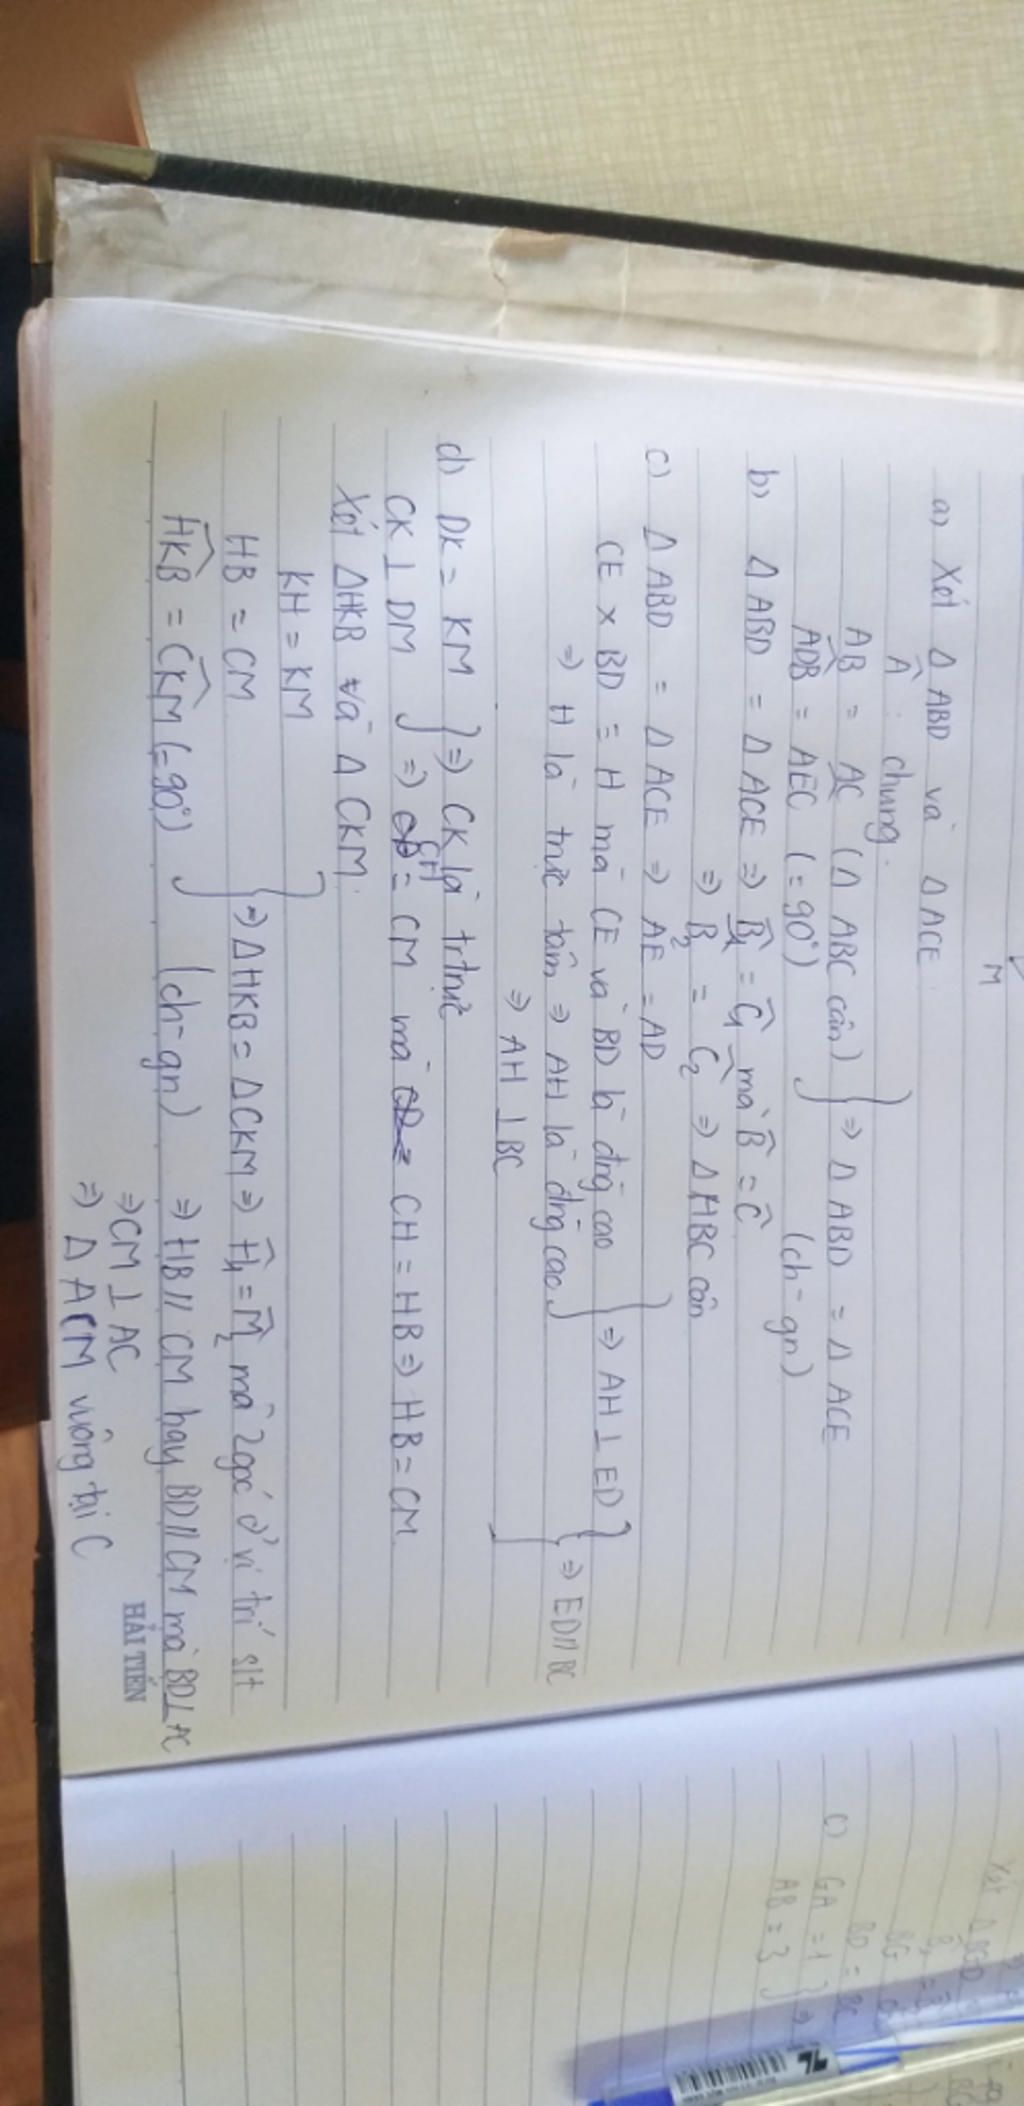 M
a) Xét Δ ABD và Δ ACE
Â : chung.
AB = AC (Δ ABC cân)
ADB = AEC (= 90°)
=> Δ ABD = Δ ACE
(ch - gn)
b) Δ ABD = Δ ACE => B̂1 = Ĉ1 mà B̂ = Ĉ
=> B̂2 = Ĉ2 => Δ HBC cân
c) Δ ABD = Δ ACE => AE = AD
CE x BD = H mà CE và BD là đng cao
=> AH ⊥ ED
=> H là trực tâm => AH là đng cao
=> AH ⊥ BC
=> ED // BC
d) DK = KM
CK ⊥ DM
=> CK là tr trực
=> CH = CM mà CH = HB => HB = CM
Xét ΔHKB và Δ CKM.
KH = KM
HB = CM
HKB = CKM (= 90°)
=> ΔHKB = ΔCKM => Ĥ1 = M̂2 mà 2 góc ở vị trí slt
(ch - gn) => HB // CM hay BD // CM mà BD ⊥ AC
=> CM ⊥ AC
=> Δ ACM vuông tại C
HẢI TIẾN
c) GA = 1
AB = 3
BD = BC